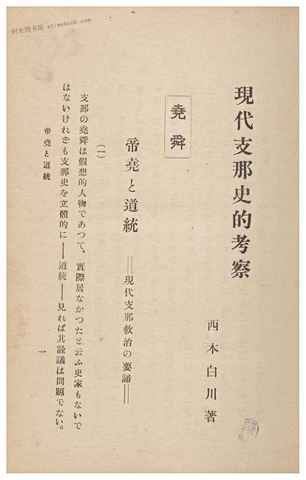 現代支那史的考察
西本白川著
堯舜
帝堯と道統 ――現代支那救治の要諦――
(一)
支那の堯舜は假想的人物であつて、實際居なかつたと云ふ史家もないで
はないけれども支那史を立體的に――道統――見れば其詮議は問題でない。
帝堯と道統
一